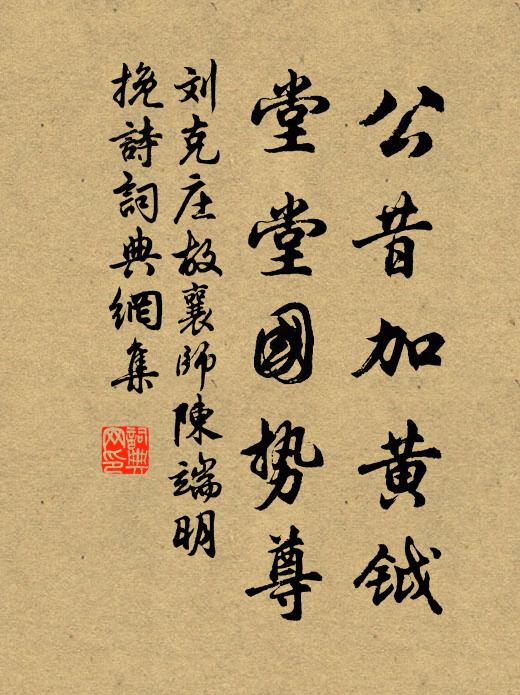 公昔加黄钺
堂堂國势尊
刘克庄故襄師陳端明
挽詩詞典網集
詞典網印